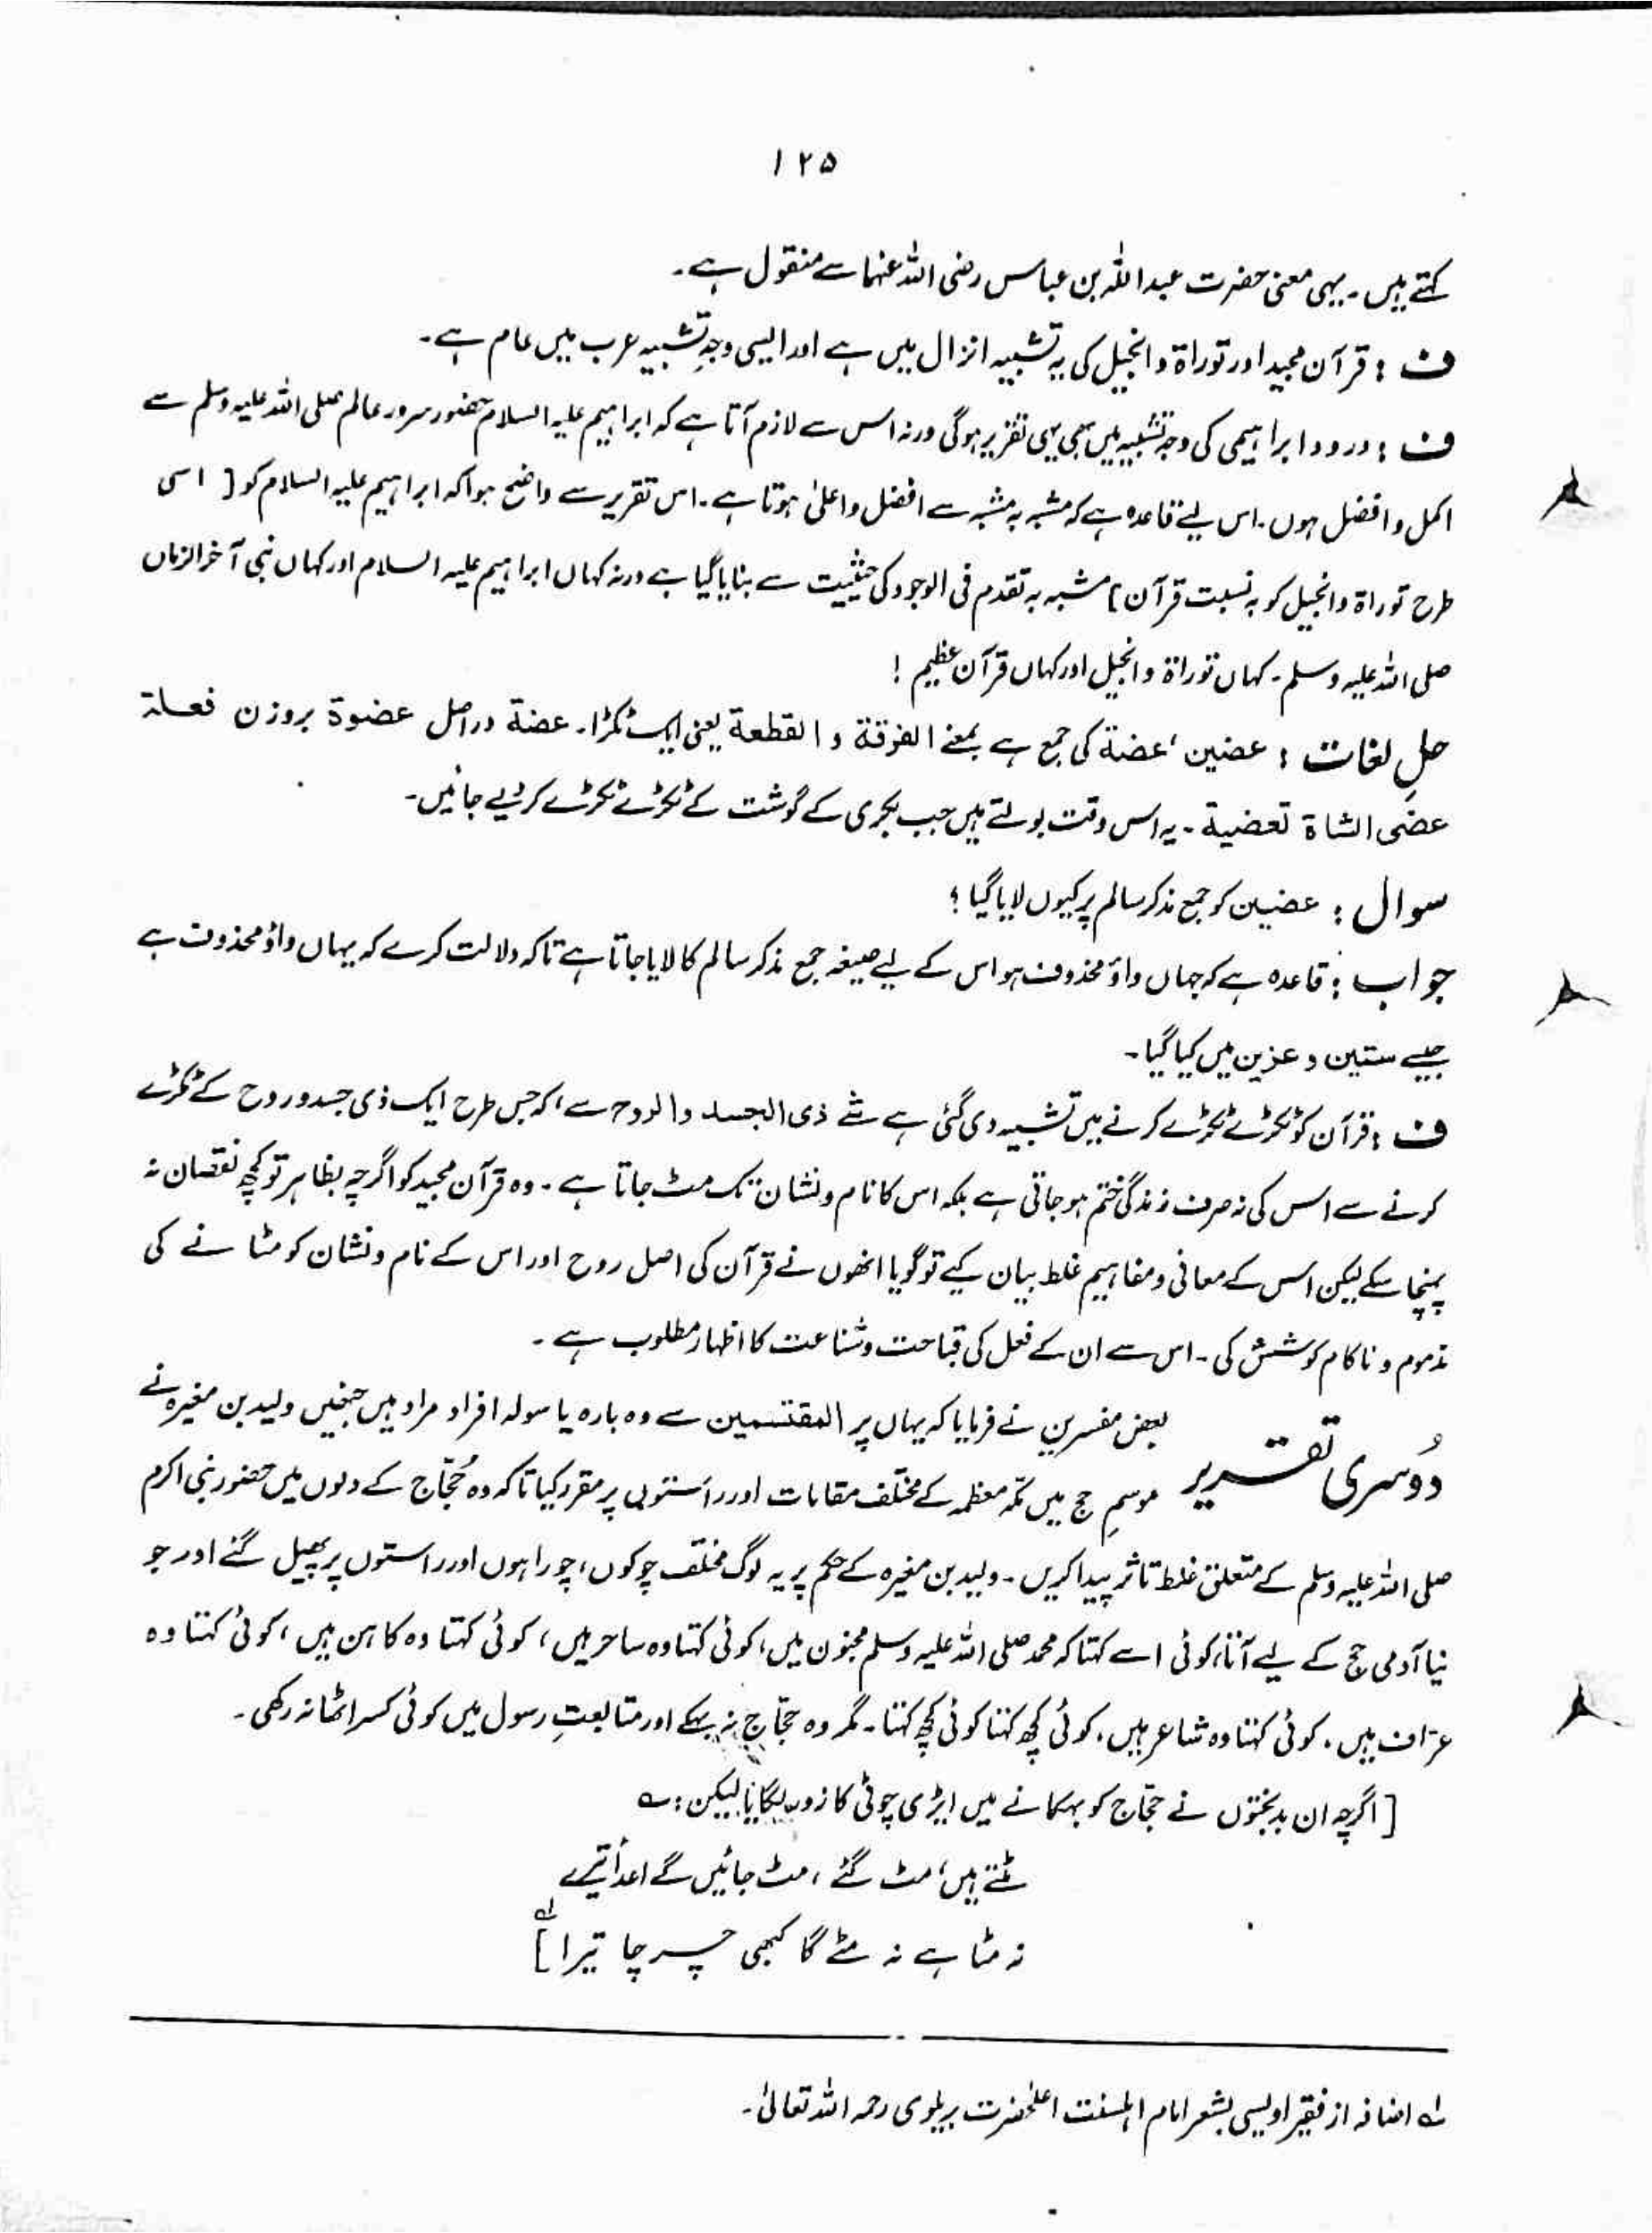 ۱۲۵
کہتے ہیں۔ یہی معنی حضرت عبداللہ بن عباس رضی اللہ عنہما سے منقول ہے۔
ف : قرآن مجید اور توراۃ و انجیل کی یہ تشبیہ انزال میں ہے اور ایسی وجہِ تشبیہ عرب میں عام ہے۔
ف : درود ابراہیمی کی وجہ تشبیہ میں بھی یہی تقریر ہوگی ورنہ اس سے لازم آتا ہے کہ ابراہیم علیہ السلام حضور سرور عالم صلی اللہ علیہ وسلم سے
اکمل و افضل ہوں۔ اس لیے قاعدہ ہے کہ مشبہ بہ مشبہ سے افضل و اعلیٰ ہوتا ہے۔ اس تقریر سے واضح ہوا کہ ابراہیم علیہ السلام کو [ اسی
طرح توراۃ و انجیل کو بہ نسبت قرآن ] مشبہ بہ تقدم فی الوجود کی حیثیت سے بنایا گیا ہے ورنہ کہاں ابراہیم علیہ السلام اور کہاں نبی آخر الزماں
صلی اللہ علیہ وسلم۔ کہاں توراۃ و انجیل اور کہاں قرآن عظیم !
حلِ لغات : عضین ، عضۃ کی جمع ہے بمعنے الفرقۃ و القطعۃ یعنی ایک ٹکڑا۔ عضۃ دراصل عضوۃ بروزن فعلۃ
عضی الشاۃ تعضیۃ ۔ یہ اس وقت بولتے ہیں جب بکری کے گوشت کے ٹکڑے ٹکڑے کر دیے جائیں۔
سوال : عضین کو جمع مذکر سالم پر کیوں لایا گیا ؟
جواب : قاعدہ ہے کہ جہاں واؤ محذوف ہو اس کے لیے صیغہ جمع مذکر سالم کا لایا جاتا ہے تاکہ دلالت کرے کہ یہاں واؤ محذوف ہے
جیسے ستین و عزین میں کیا گیا۔
ف : قرآن کو ٹکڑے ٹکڑے کرنے میں تشبیہ دی گئی ہے شے ذی الجسد و الروح سے ، کہ جس طرح ایک ذی جسد و روح کے ٹکڑے
کرنے سے اس کی نہ صرف زندگی ختم ہو جاتی ہے بلکہ اس کا نام و نشان تک مٹ جاتا ہے۔ وہ قرآن مجید کو اگرچہ بظاہر تو کچھ نقصان نہ
پہنچا سکے لیکن اس کے معانی و مفاہیم غلط بیان کیے تو گویا انھوں نے قرآن کی اصل روح اور اس کے نام و نشان کو مٹانے کی
مذموم و ناکام کوشش کی۔ اس سے ان کے فعل کی قباحت و شناعت کا اظہار مطلوب ہے۔
دُوسری تقریر بعض مفسرین نے فرمایا کہ یہاں پر المقتسمین سے وہ بارہ یا سولہ افراد مراد ہیں جنھیں ولید بن مغیرہ نے
موسمِ حج میں مکّہ معظمہ کے مختلف مقامات اور راستوں پر مقرر کیا تاکہ وہ حُجّاج کے دلوں میں حضور نبی اکرم
صلی اللہ علیہ وسلم کے متعلق غلط تاثر پیدا کریں۔ ولید بن مغیرہ کے حکم پر یہ لوگ مختلف چوکوں ، چوراہوں اور راستوں پر پھیل گئے اور جو
نیا آدمی حج کے لیے آتا ، کوئی اسے کہتا کہ محمد صلی اللہ علیہ وسلم مجنون ہیں ، کوئی کہتا وہ ساحر ہیں ، کوئی کہتا وہ کاہن ہیں ، کوئی کہتا وہ
عرّاف ہیں ، کوئی کہتا وہ شاعر ہیں ، کوئی کچھ کہتا کوئی کچھ کہتا۔ مگر وہ حجّاج نہ بہکے اور متابعتِ رسول میں کوئی کسر اٹھا نہ رکھی۔
[ اگرچہ ان بدبختوں نے حجّاج کو بہکانے میں ایڑی چوٹی کا زور لگایا لیکن : ؎
مٹتے ہیں ، مٹ گئے ، مٹ جائیں گے اعدا تیرے
نہ مٹا ہے نہ مٹے گا کبھی چرچا تیرا ] لہ
لہ اضافہ از فقیر اویسی بشعر امام اہلسنت اعلیٰحضرت بریلوی رحمہ اللہ تعالیٰ۔